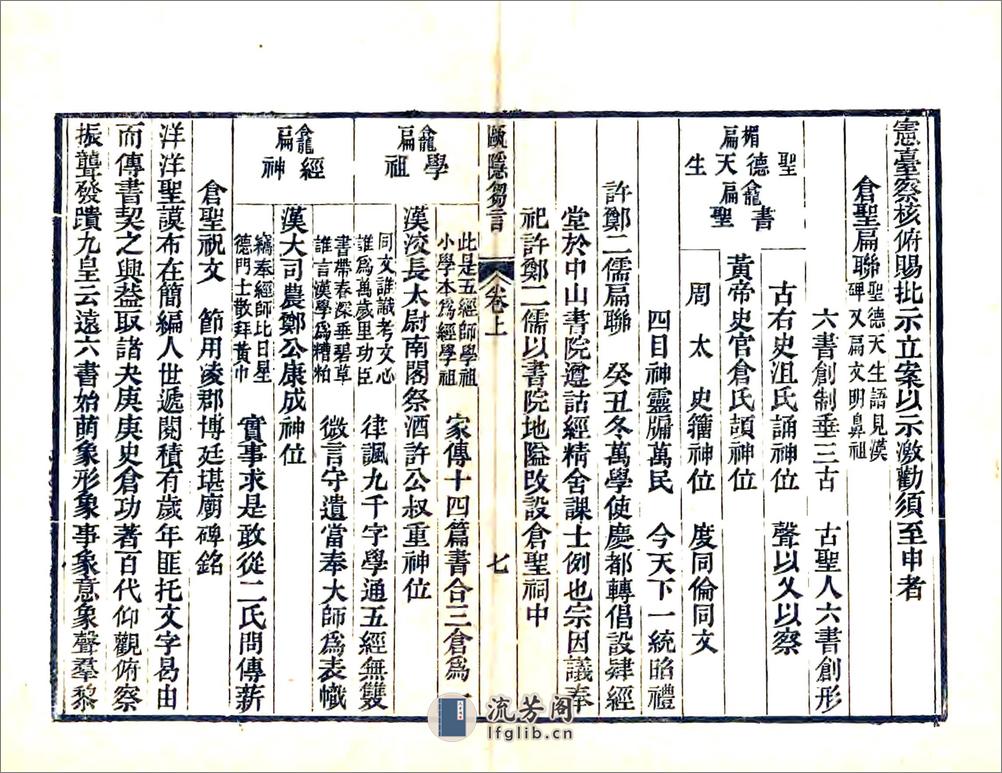 憲臺察核俯賜批示立案以示激勸須至申者
倉聖扁聯聖德天生語見漢碑又扁文明鼻祖
楣扁
聖德天生
龕扁
書聖
六書創制垂三古　古聖人六書創形
古右史沮氏誦神位　聲以乂以察
黃帝史官倉氏頡神位
周太史籀神位　度同倫同文
四目神靈牖萬民　今天下一統䧟禮
許鄭二儒扁聯　癸丑冬萬學使慶都轉倡設肄經
堂於中山書院遵詁經精舍課士例也宗因議奉
祀許鄭二儒以書院地隘改設倉聖祠中
甌隱芻言　卷上　七
龕扁
學祖
此是五經師學祖小學本爲經學祖　家傳十四篇書合三倉爲一
漢浚長太尉南閣祭酒許公叔重神位
同文誰識考文心誰爲萬歲里功臣　律諷九千字學通五經無雙
龕扁
經神
書帶春深垂碧草誰言漢學爲糟粕　微言守遺當奉大師爲表幟
漢大司農鄭公康成神位
竊奉經師比日星德門士散拜黃巾　實事求是敢從二氏問傳薪
倉聖祝文　節用凌郡博廷堪廟碑銘
洋洋聖謨布在簡編人世遞閱積有歲年匪托文字曷由
而傳書契之興葢取諸夬庚庚史倉功著百代仰觀俯察
振聾發聵九皇云遠六書始萌象形象事象意象聲羣黎
流芳阁
lfglib.cn